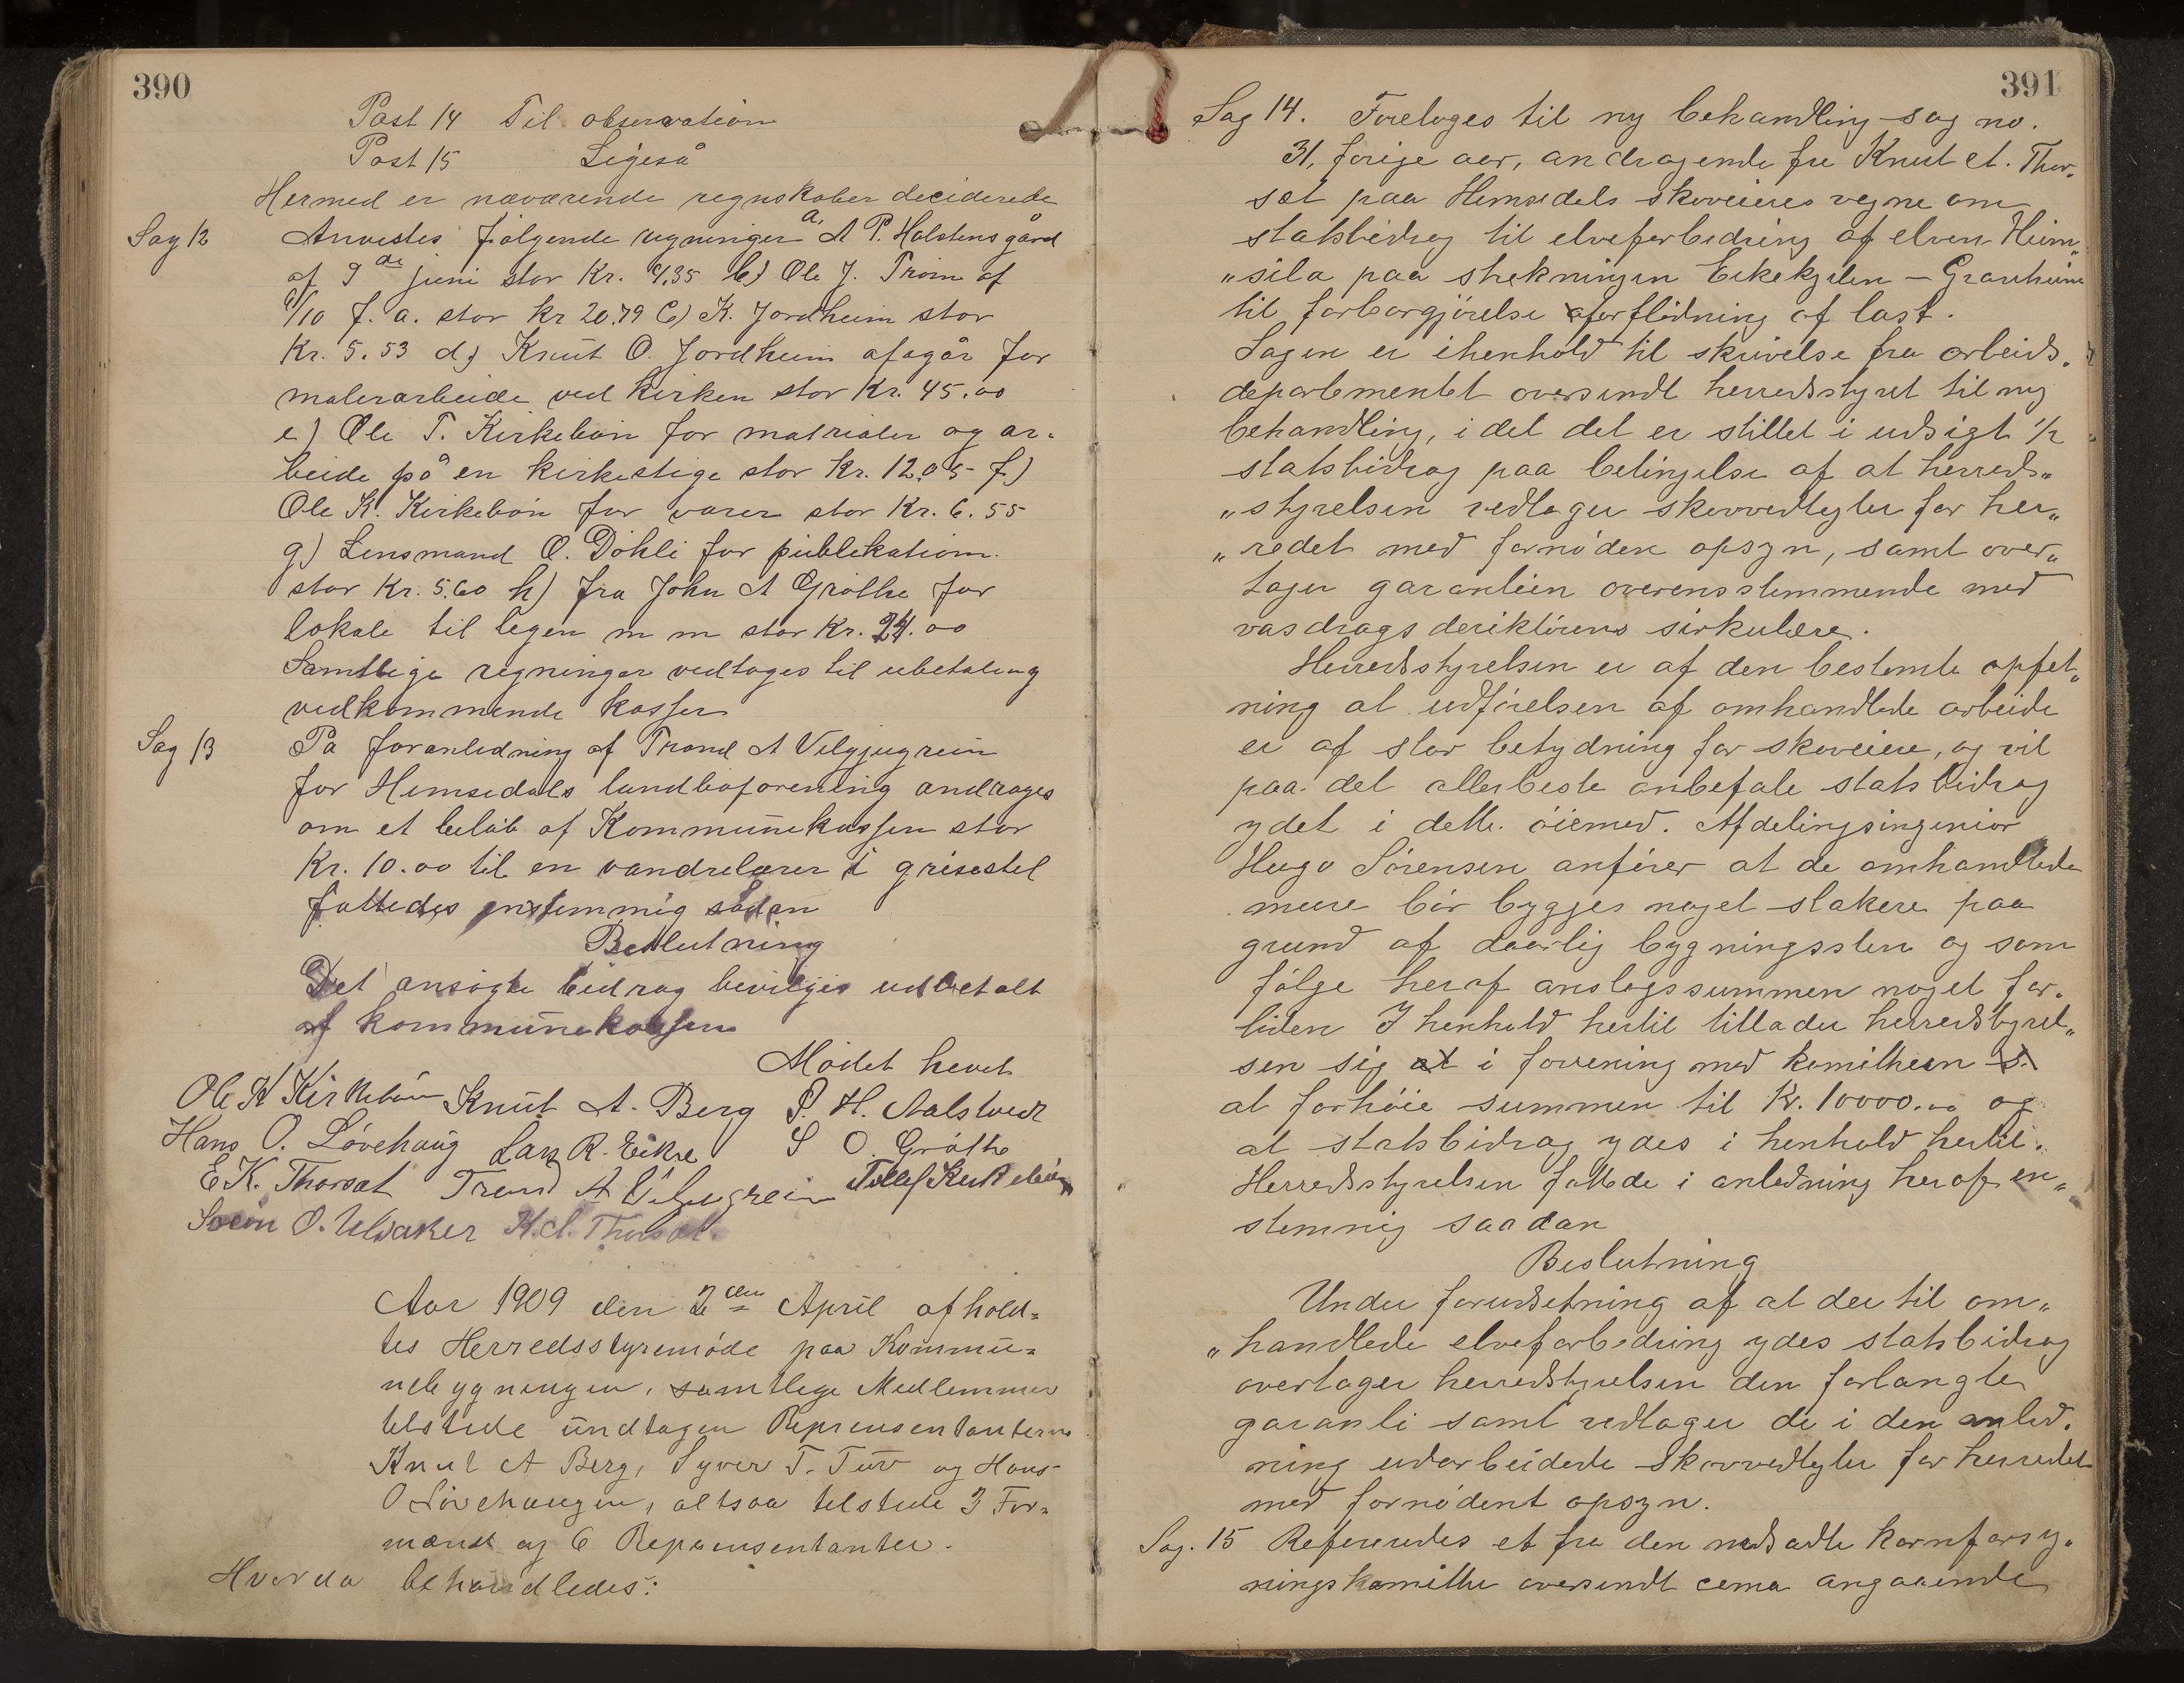 390
Post 14 Til observation
Post 15 Ligeså
Hermed er nærværende regnskaber deciderede
Sag 12 Anvistes følgende regninger a, A P. Halstensgård
af 9de juni stor Kr. 9.35 b) Ole J. Troim af
/10 f. a. stor kr 20.79 C) K. Jordheim stor
Kr. 5.53 d) Knut O. Jordheim afagår for
malerarbeide ved kirken stor Kr. 45.00
e) Ole T. Kirkebøn for matrialer og ar-
beide på en kirkestige stor Kr. 12.05 f.)
Ole K. Kirkebøn for varer stor Kr. 6.55
g) Lensmand O. Döhli for publikation.
stor Kr. 5.60 h) fra John A Grøthe for
lokale til legen m m stor Kr. 24.00
Samtlige regninger vedtoges til ubetaling
vedkommende kasser
Sag 13 På foranledning af Trond A Ulgjugrein
for Hemsedals landboforening andrages
om et beløb af Kommunekassen stor
Kr. 10.00 til en vandrelærer i grisestel
fattedes enstemmig sådan
Beslutning
Det ansøgte bidrag bevilges udbetalt
af kommunekassen
Mödet hevet
Ole K Kirkebön Knut A. Berg S. H. Aalstveit
Hans O. Løvehaug Lars R. Eikre S O. Grøthe
E K. Thorset Trond A Ulgugrein Tollef Kirkebøen
Svein O. Ulsaker K. A. Thorset.
Aar 1909 den 2den April afhold-
tes Herredsstyremøde paa Kommu-
nebygningen, samtlige Medlemmer
tilstede undtagen Reprensentanterne
Knut A Berg, Syver T. Tuv og Hans
O Løvehaugen, altsaa tilstede 3 For-
mænd og 6 Reprensentanter.
Hvorda behandledes:
391
Sag 14. Foretoges til ny behandling sag no.
31, forige aar, andragende fra Knut A. Thor-
set paa Hemsedals skoveieres vegne om
statsbidrag til elveforbedring af elven Heim„
„sila paa strekningen Eikekjilen – Granheim
til forbargjörelse forflödning af last.
Sagen er ihenhold til skrivelse fra arbeids-
departementet oversendt herredsstyret til ny
behandling, i det det er stillet i udsigt 1/2
statsbidrag paa betingelse af at herreds„
„styrelsen vedtager skovvedtegter for her„
„redet med fornöden opsyn, samt over„
tager garantien overensstemmende med
vasdragsderiktörens sirkulære.
Herredsstyrelsen er af den bestemte opfat„
ning at udførelsen af omhandlede arbeide
er af stor betydning for skoveiere, og vil
paa det allerbeste anbefale statsbidrag
ydet i dette öiemed. Afdelingsingeniør
Hugo Sörensen anförer at de omhandlede
mure bör bygges noget stakere paa
grund af daarlig bygningssten og som
fölge heraf anslagssummen noget for-
liden I henhold hertil tillader herredstyrel„
sen sig at i forening med komitheen s.
at forhöie summen til Kr. 10000.00 og
at statsbidrag ydes i henhold hertil.
Herredsstyrelsen fattede i anledning heraf en„
stemmig saadan
Beslutning
Under forudsetning af at der til om„
„handlede elveforbedring ydes statsbidrag
overtager herredstyrelsen den forlangte
garanti samt vedtager de i den anled-
ning udarbeidede skovvedtegter for herredet
med fornödent opsyn.
Sag. 15 Refereredes et fra den nedsatte kornforsy-
ningskomithe oversendt cema angaaende